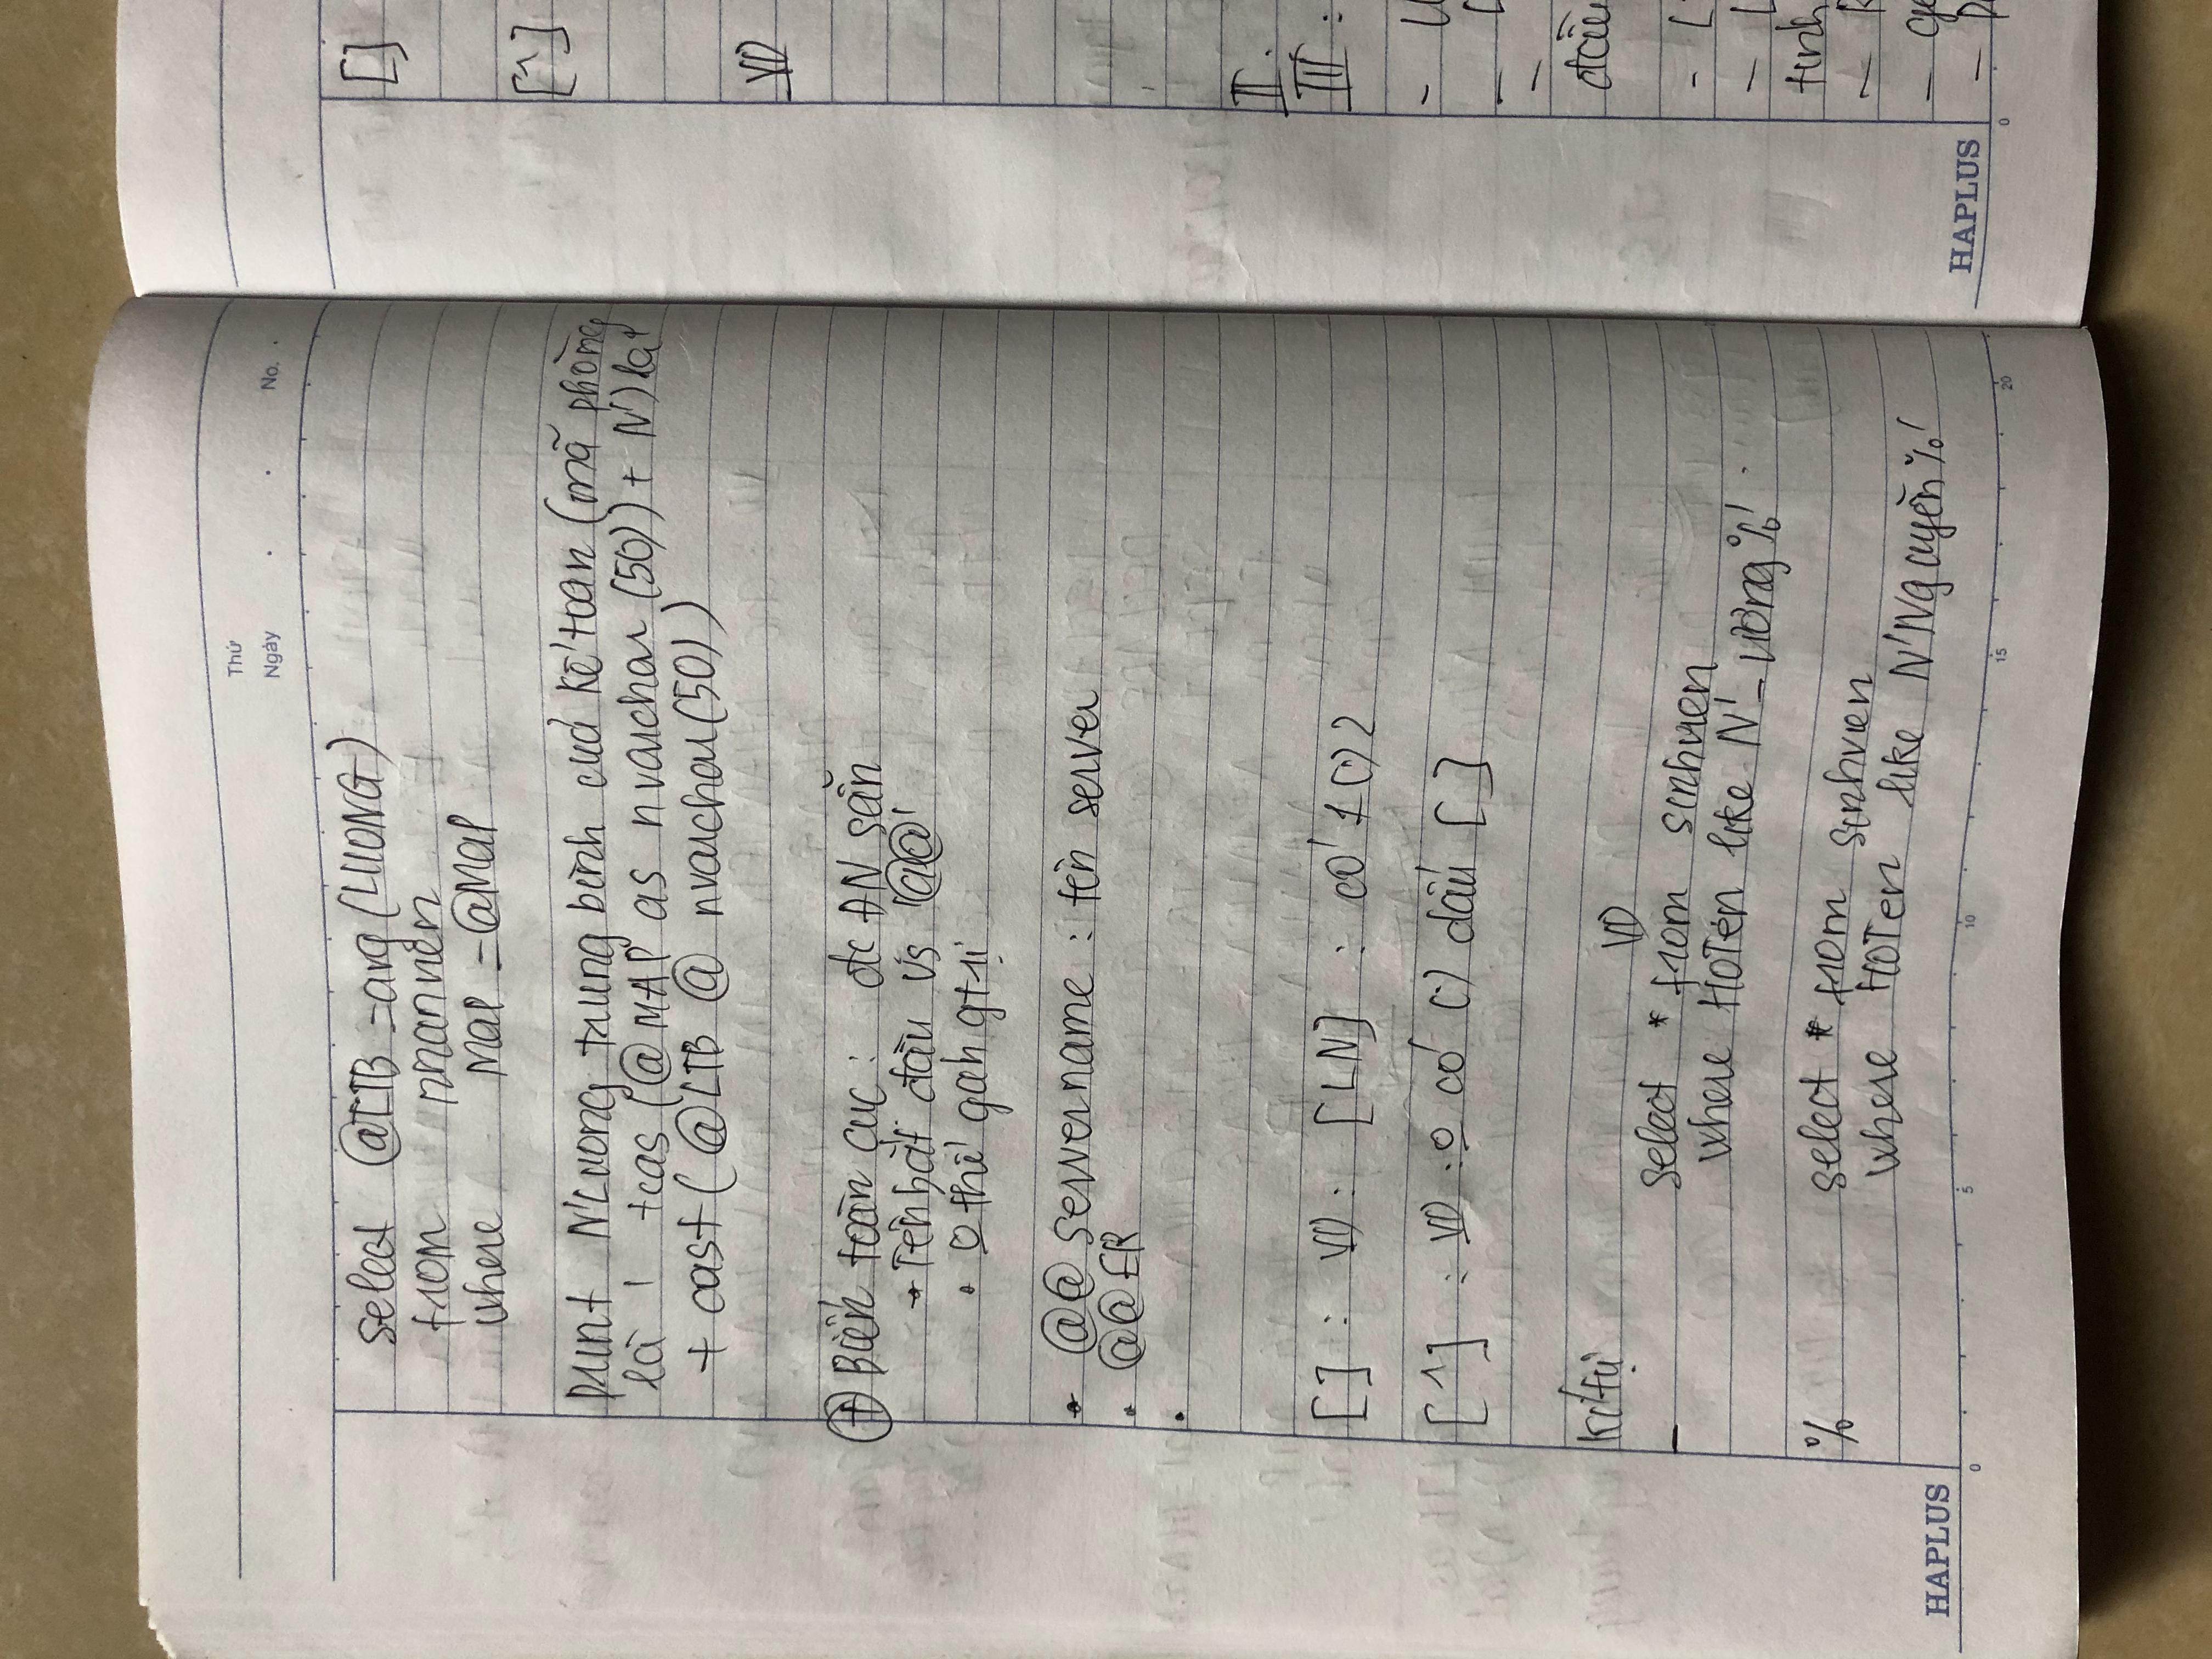 Thứ
Ngày . . No. .
select @LTB = avg (LUONG)
from nhanvien
where MaP = @MaP
print N'Luong trung bình cuả Kế toan (mã phòng
là ' + cas (@MAP as nvarchar (50)) + N') là'
+ cast ( @LTB @ nvarchar (50))
⊕ Biến toàn cục : đc ĐN sẵn
• Tên bắt đầu vs '@@'
• 0 thể gán gtrị
• @@ servername : tên server
• @@ ER
•
[ ] : VD : [LN] : có 1 (.) 2
[^] : VD : 0 có (.) dấu [ ]
Kí tự VD
_ select * from sinhvien
where HOTên like N'_ương%'
% select * from sinhvien
where HOTen like N'Nguyễn%'
HAPLUS
0 5 10 15 20
[ ]
[^]
VD
II.
III :
đầu
HAPLUS
0